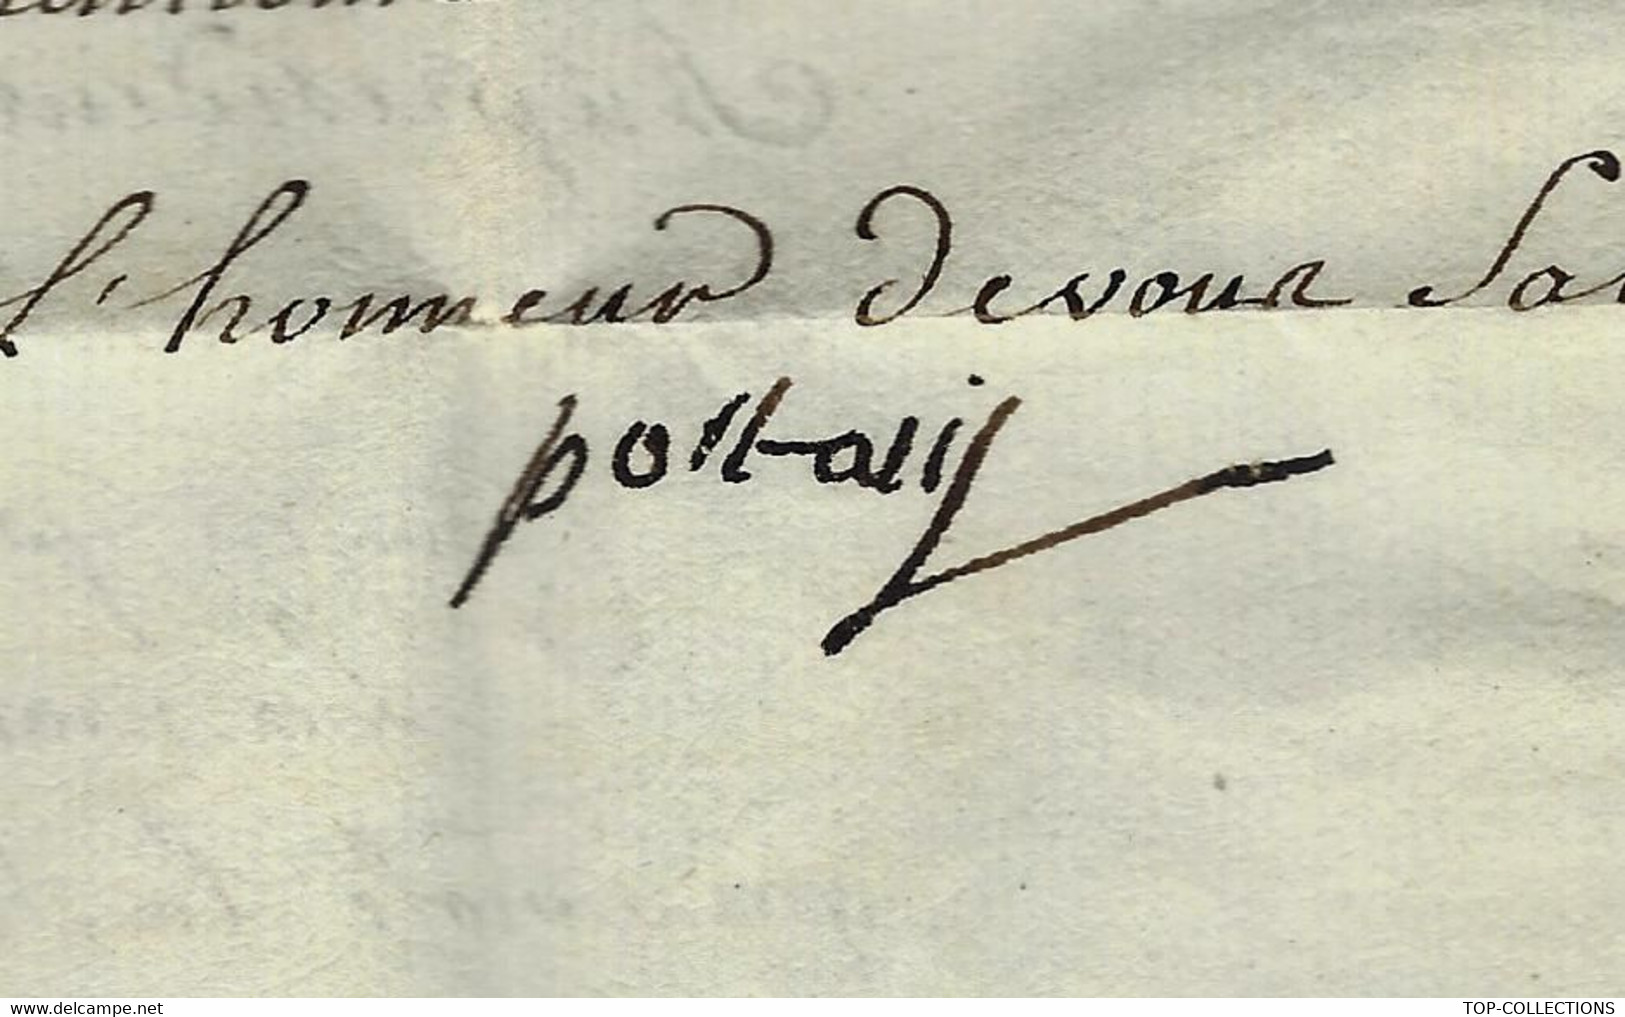 l'honneur de vous Sal
portal
delcampe.net
TOP-COLLECTIONS